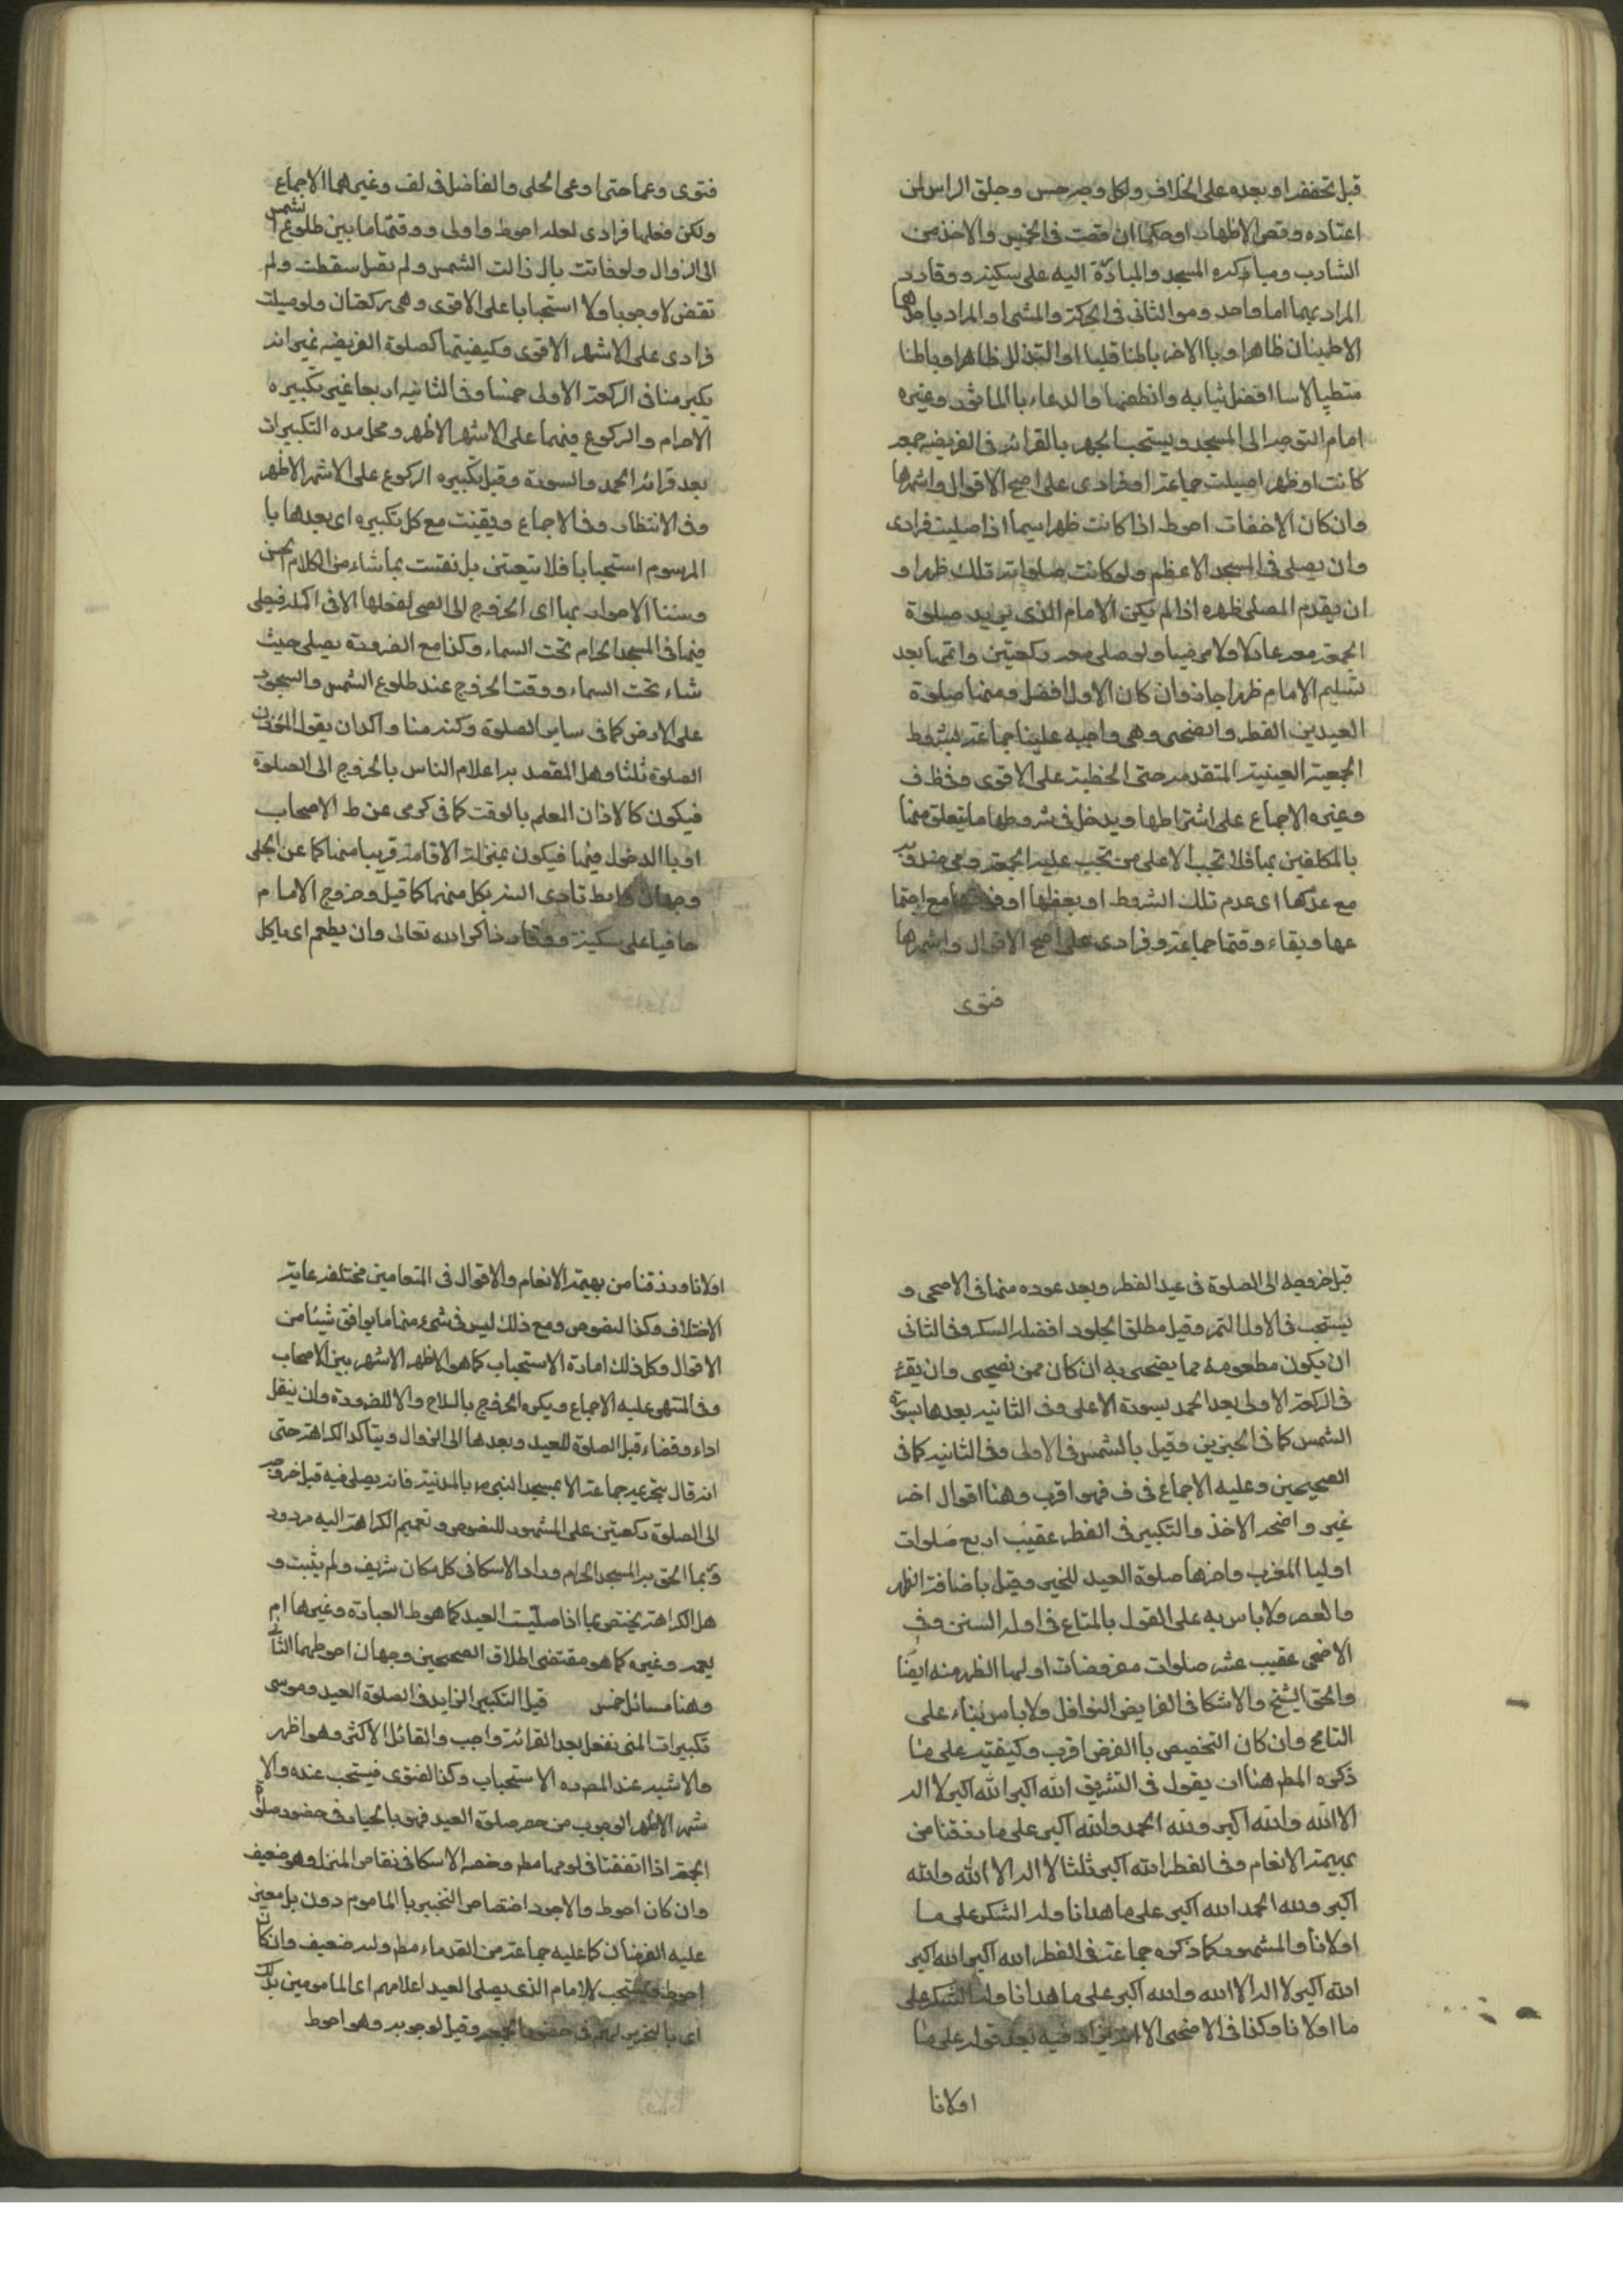 قبل تخففه او بعده على الخلاف ولكل وجه حسن وحلق الراس لمن
اعتاده وقص الاظفار او حكها ان قصت في الخميس والاخذ من
الشارب ومباكره المسجد والمبادرة اليه على سكينه ووقار و
المراد بهما اما واحد وهو التاني في الحركة والمشي او المراد باحدهما
الاطمينان ظاهرا وبالاخر باطنا قلبا او التذلل ظاهرا وباطنا
متطيبا لابسا افضل ثيابه وانظفها والدعاء بالماثور وغيره
امام التوجه الى المسجد ويستحب الجهر بالقرائة في الفريضه جمعه
كانت او ظهرا صليت جماعة او فرادى على اصح الاقوال واشهرها
وان كان الاخفات احوط اذا كانت ظهرا سيما اذا صليت فرادى
وان يصلى في المسجد الاعظم ولو كانت صلواته تلك ظهرا و
ان يقدم المصلى ظهره اذا لم يكن الامام الذى يريد صلوة
الجمعة معه عادلا ولا مرضيا ولو صلى معه ركعتين واتمها بعد
تسليم الامام ظهرا جاز وان كان الاول افضل ومنها صلوة
العيدين الفطر والضحى وهي واجبه علينا جماعة بشروط
الجمعة العينية المتقدمه حتى الخطبة على الاقوى وظ ف
وغيره الاجماع على اشتراطها ويدخل في شروطها ما يتعلق منها
بالمكلفين بها فلا تجب الا على من تجب عليه الجمعة وهي مندوبة
مع عدمها اى عدم تلك الشروط او بعضها مع اجتما
عها وبقاء وقتها جماعة وفرادى على اصح الاقوال واشهرها
فتوى
فتوى وعملا حتى ادعى الحلى والفاضل في لف وغيرهما الاجماع
ولكن فعلها فرادى لعله احوط واولى ووقتها ما بين طلوع الشمس
الى الزوال ولو فاتت بان زالت الشمس ولم تصل سقطت ولم
تقض لا وجوبا ولا استحبابا على الاقوى وهي ركعتان ولو صليت
فرادى على الاشهر الاقوى وكيفيتها كصلوة الفريضه غير انه
يكبر منها في الركعة الاولى خمسا وفي الثانيه اربعا غير تكبيره
الاحرام والركوع فيهما على الاشهر الاظهر ومحل هذه التكبيرات
بعد قرائة الحمد والسورة وقبل تكبيره الركوع على الاشهر الاظهر
وفي الانتظار وف الاجماع ويقنت مع كل تكبيره اى بعدها با
المرسوم استحبابا فلا يتعين بل يقنت بما شاء من الكلام الحسن
وسننها الاصحار بها اى الخروج الى الصحرا لفعلها الا في المكه فيصلى
فيها في المسجد الحرام تحت السماء وكذا مع الضرورة يصلى حيث
شاء تحت السماء ووقت الخروج عند طلوع الشمس والسجود
على الارض كما في ساير الصلوة ولكنه هنا واكد ان يقول الموذن
الصلوة ثلثا وهل المقصد به اعلام الناس بالخروج الى الصلوة
فيكون كالاذان العلم بالوقت كما في كرى عن ط الاصحاب
او بالدخول فيها فيكون بمنزلة الاقامة قريبا منها كما عن الحلى
وجهان تادى السنه بكل منهما كما قيل وخروج الامام
حافيا على سكينة ووقار ذاكر الله تعالى وان يطعم اى ياكل
قبل خروجه الى الصلوة في عيد الفطر وبعد عوده منها في الاضحى و
يستحب في الاول التمر وقيل مطلق الحلو وافضله السكر وفي الثانى
ان يكون مطعومه مما يضحى به ان كان ممن يضحى وان يقرء
في الركعة الاولى بعد الحمد بسورة الاعلى وفي الثانيه بعدها بسورة
الشمس كما في الخبرين وقيل بالشمس في الاولى وفي الثانيه كما في
الصحيحين وعليه الاجماع في ف فهو اقرب وهنا اقوال اخر
غير واضحه الاخذ والتكبير في الفطر عقيب اربع صلوات
اوليها المغرب واخرها صلوة العيد للخبر وقيل باضافة الظهر
والعصر ولا باس به على القول بالمتاع في ادله السنن وفي
الاضحى عقيب عشر صلوات مفروضات اولها الظهر منه ايضا
والحق الشيخ والاسكا في الفرايض النوافل ولا باس بناء على
التسامح وان كان التخصيص بالفرض اقرب وكيفيته على ما
ذكره المط هنا ان يقول في التشريق الله اكبر الله اكبر لا اله
الا الله والله اكبر ولله الحمد والله اكبر على ما رزقنا من
بهيمة الانعام وفي الفطر الله اكبر ثلثا لا اله الا الله والله
اكبر ولله الحمد الله اكبر على ما هدانا وله الشكر على ما
اولانا والمشهور كما ذكره جماعة في الفطر الله اكبر الله اكبر
الله اكبر لا اله الا الله والله اكبر على ما هدانا وله الشكر على
ما اولانا وكذا في الاضحى الا انه يزاد فيه بعد قوله على ما
اولانا
اولانا ورزقنا من بهيمة الانعام والاقوال في المقامين مختلفه غاية
الاختلاف وكذا النصوص ومع ذلك ليس في شيء منها ما يوافق شيئا من
الاقوال وكل ذلك امارة الاستحباب كما هو الاظهر الاشهر بين الاصحاب
وفي المنتهى عليه الاجماع ويكره الخروج بالسلاح والا للضرورة وان ينفل
اداء وقضاء قبل الصلوة للعيد وبعدها الى الزوال ويتاكد الكراهة حتى
انه قال بتحريمه جماعة الا بمسجد النبي ص بالمدنية فانه يصلى فيه قبل خروجه
الى الصلوة ركعتين على المشهور للنصوص وتعميم الكراهة اليه مردود
وربما الحق به المسجد الحرام وزاد الاسكافى كل مكان شريف ولم يثبت و
هل الكراهة يختص بما اذا صليت العيد كما هو ط العبارة وغيرها ام
يعمه وغيره كما هو مقتضى اطلاق الصحيحين وجهان احوطهما الثانى
وهنا مسائل خمس قيل التكبير الزايد في الصلوة العيد وهو سى
تكبيرات التى تفعل بعد القرائة واجب والقائل الاكثر وهو اظهر
والاشبه عند المص ره الاستحباب وكذا القنوت فيستحب عنده والا
شهر الاظهر الوجوب من حضر صلوة العيد فهو بالخيار في حضور صلوة
الجمعة اذا اتفقتا في يومها مطر وخصه الاسكا في بقاصى المنزل وهو ضعيف
وان كان احوط والاجود اختصاص التخيير بالماموم دون بل معين
عليه الفرضان كما عليه جماعة من القدماء مطر وليه ضعيف وان كان
احوط ويستحب للامام الذى يصلى العيد اعلامهم اى المامومين بذلك
اى بالتخيير لهم في حضور الجمعه وقيل لوجوبه وهو احوط